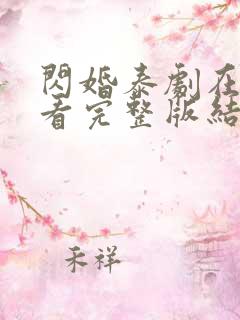 閃婚泰劇在
看完整版結
禾祥